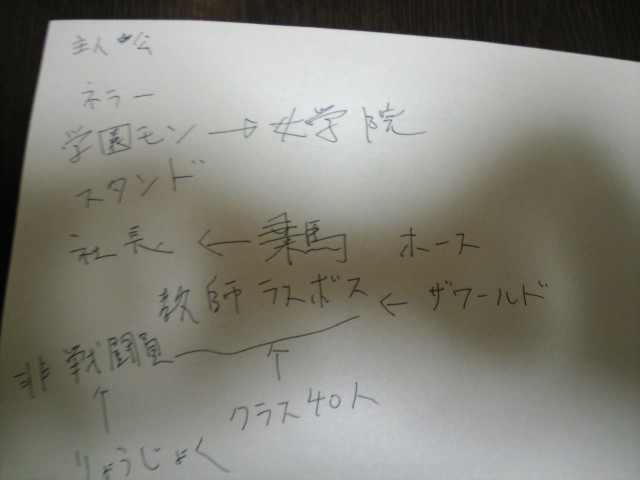 主人公
ネラー
学園モン→女学院
スタンド
社長←乗馬 ホース
教師 ラスボス ← ザワールド
非戦闘員
↑ ↑
クラス40人
りょうじょく